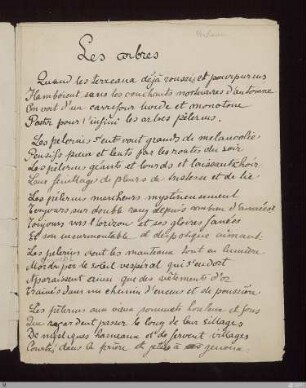 Verhaeren
Les arbres
Quand les terreaux déjà roussis et pourpris
Flamboient sous les couchants mortuaires d'automne
On voit d'un carrefour livide et monotone
Partir pour l'infini les arbres pèlerins.
Les pèlerins s'en vont grands de mélancolie
Pensifs, pieux et lents par les routes du soir
Les pèlerins géants et lourds et laissant choir
Leur feuillage de pleurs de tristesse et de lie
Les pèlerins marcheurs mystérieusement
Toujours sur double rang depuis combien d'années
Toujours vers l'horizon et ses gloires fanées
Et son insurmontable et despotique aimant.
Les pèlerins dont les manteaux tout en lumière
Mordus par le soleil vespéral qui s'endort
Apparaissent ainsi que des vêtements d'or
Traînés dans un chemin d'encens et de poussière
Les pèlerins aux vieux pommeaux houleux et fous
Que regardent passer le long de leurs sillages
De mystiques hameaux et de fervents villages
Courbés dans la prière et à genoux.